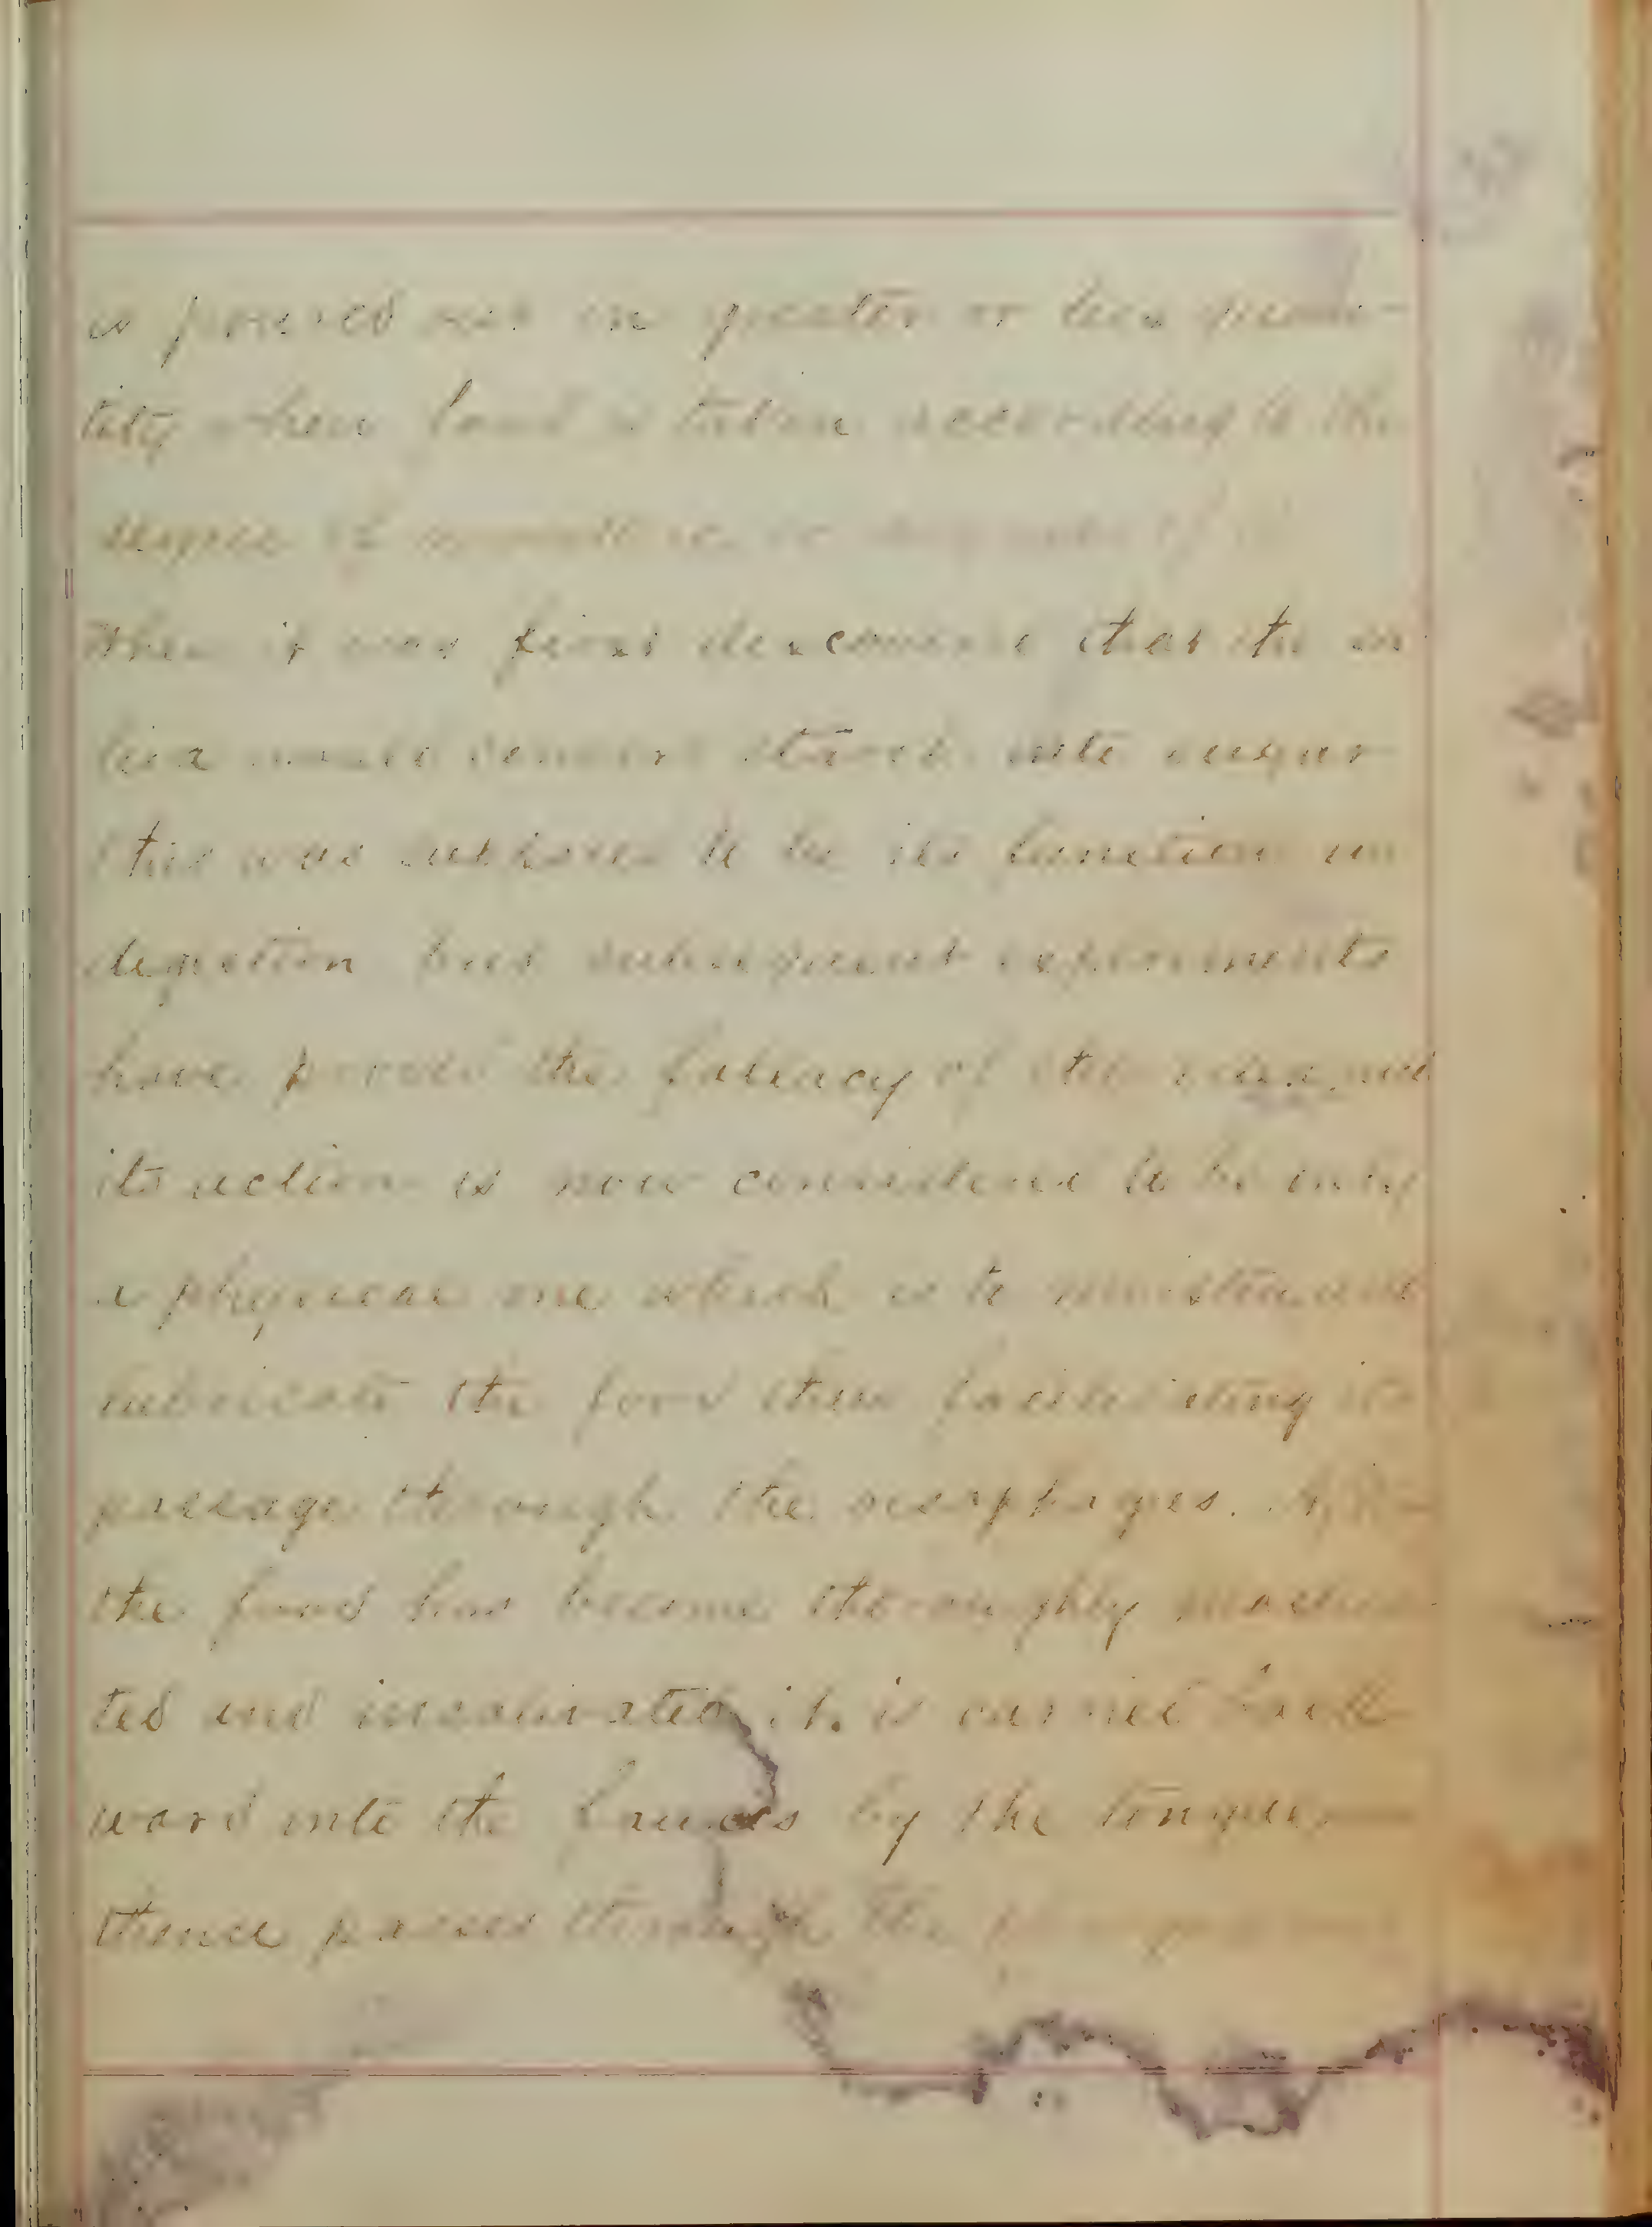 is poured out in greater or less quan-
tity when food is taken according to the
degree of
When it was first discovered that the sa
liva would convert starch into sugar
this was supposed to be its function in
digestion but subsequent experiments
have proved the fallacy of this and
its action is now considered to be only
a physical one which is to moisten and
lubricate the food thus facilitating its
passage through the oesophages. After
the food has become thoroughly mastica
ted and insalivated it is carried back
ward into the fauces by the tongue
thence passes through the